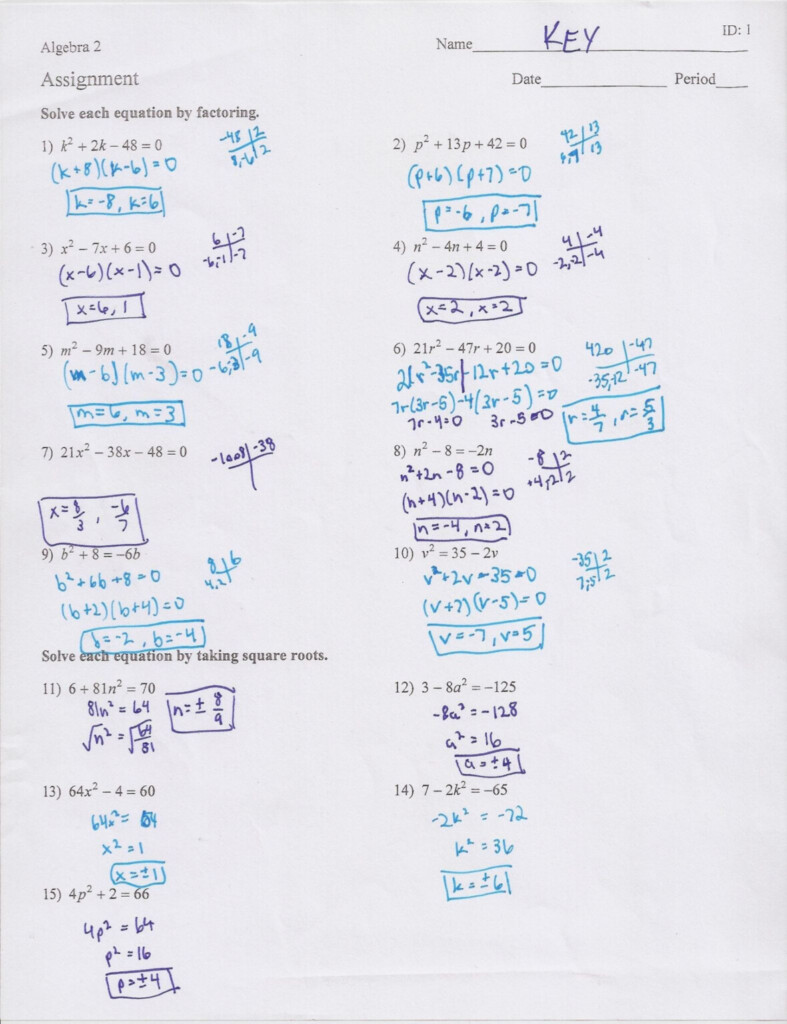 ID: 1
Algebra 2
Name KEY
Assignment
Date Period
Solve each equation by factoring.
1) k² + 2k − 48 = 0
-48 | 2
8,-6 | 2
(k+8)(k-6)=0
k=-8, k=6
2) p² + 13p + 42 = 0
42 | 13
6,7 | 13
(p+6)(p+7)=0
p=-6, p=-7
3) x² − 7x + 6 = 0
6 | -7
-6,-1 | -7
(x-6)(x-1)=0
x=6, 1
4) n² − 4n + 4 = 0
4 | -4
-2,-2 | -4
(x-2)(x-2)=0
x=2, x=2
5) m² − 9m + 18 = 0
18 | -9
-6,-3 | -9
(m-6)(m-3)=0
m=6, m=3
6) 21r² − 47r + 20 = 0
420 | -47
-35,-12 | -47
21r²-35r-12r+20=0
7r(3r-5)-4(3r-5)=0
7r-4=0 3r-5=0
r=4/7, r=5/3
7) 21x² − 38x − 48 = 0
-1008 | -38
x=8/3, -6/7
8) n² − 8 = −2n
-8 | 2
+4,-2 | 2
n²+2n-8=0
(n+4)(n-2)=0
n=-4, n=2
9) b² + 8 = −6b
8 | 6
4,2
b²+6b+8=0
(b+2)(b+4)=0
b=-2, b=-4
10) v² = 35 − 2v
-35 | 2
7,-5 | 2
v²+2v-35=0
(v+7)(v-5)=0
v=-7, v=5
Solve each equation by taking square roots.
11) 6 + 81n² = 70
81n² = 64
√n² = √64/81
n=± 8/9
12) 3 − 8a² = −125
-8a² = -128
a² = 16
a=±4
13) 64x² − 4 = 60
64x² = 64
x² = 1
x=±1
14) 7 − 2k² = −65
-2k² = -72
k² = 36
k=±6
15) 4p² + 2 = 66
4p² = 64
p² = 16
p=±4